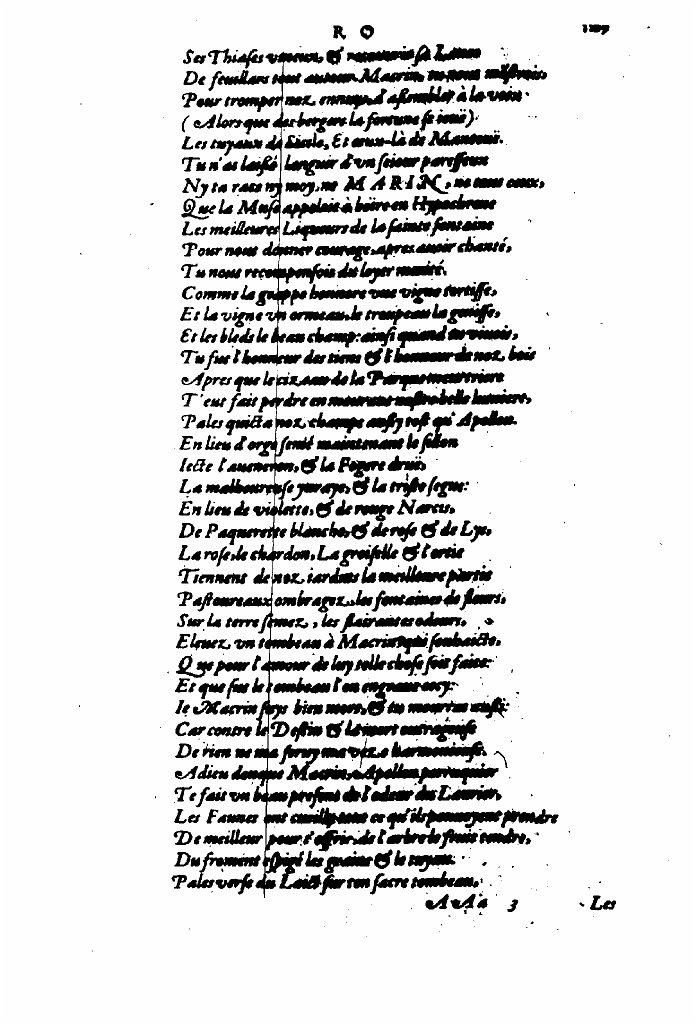 R O
Ses Thiases vineux, & ses Lences
De feuillars tout autour. Macrin, tu nous monstrois,
Pour tromper noz ennuys, d'assembler à la voix
(Alors que des bergers la fortune se iouë)
Les tuyaux de Sicile, Et ceux-là de Mantouë.
Tu n'as laissé languir d'vn seiour paresseux
Ny ta race ny moy, ne MARIN, ne tous ceux,
Que la Muse appeloit à boire en Hypocrene
Les meilleures Liqueurs de la sainte fontaine
Pour nous donner courage, apres auoir chanté,
Tu nous recompensois du loyer merité.
Comme la grappe honnore vne vigne tortisse,
Et la vigne vn ormeau, le troupeau la genisse,
Et les bleds le beau champ: ainsi quand tu viuois,
Tu fus l'honneur des tiens & l'honneur de noz bois
Apres que le cizeau de la Parque meurtriere
T'eut fait perdre en mourant nostre belle lumiere,
Pales quicta noz champs aussy tost qu'Apollon.
En lieu d'orge semé maintenant le sillon
Iecte l'aueneron, & la Fogere druë,
La malheureuse yuraye, & la triste seguë:
En lieu de violette, & de rouge Narcis,
De Paquerette blanche, & de rose & de Lys,
La rose, le chardon, La groiselle & l'ortie
Tiennent de noz iardins la meilleure partie
Pastoureaux ombragez, les fontaines de fleurs,
Sur la terre semez, les flairantes odeurs,
Elleuez vn tombeau à Macrin qui souhaicte,
Que pour l'amour de luy telle chose soit faite:
Et que sus le tombeau l'on engraue cecy:
Ie Macrin suys bien mort, & tu mourras aussi:
Car contre le Destin & la mort outrageuse
De rien ne ma seruy ma voix harmonieuse.
Adieu donque Macrin, Apollon perruquier
Te fait vn beau present de l'odeur du Laurier,
Les Faunes ont cueilly tout ce qu'ils pouuoyent prendre
De meilleur pour t'offrir, de l'arbre le fruit tendre,
Du froment espigé les grains & le tuyau.
Pales verse du Laict sur ton sacre tombeau,
AAa 3 Les